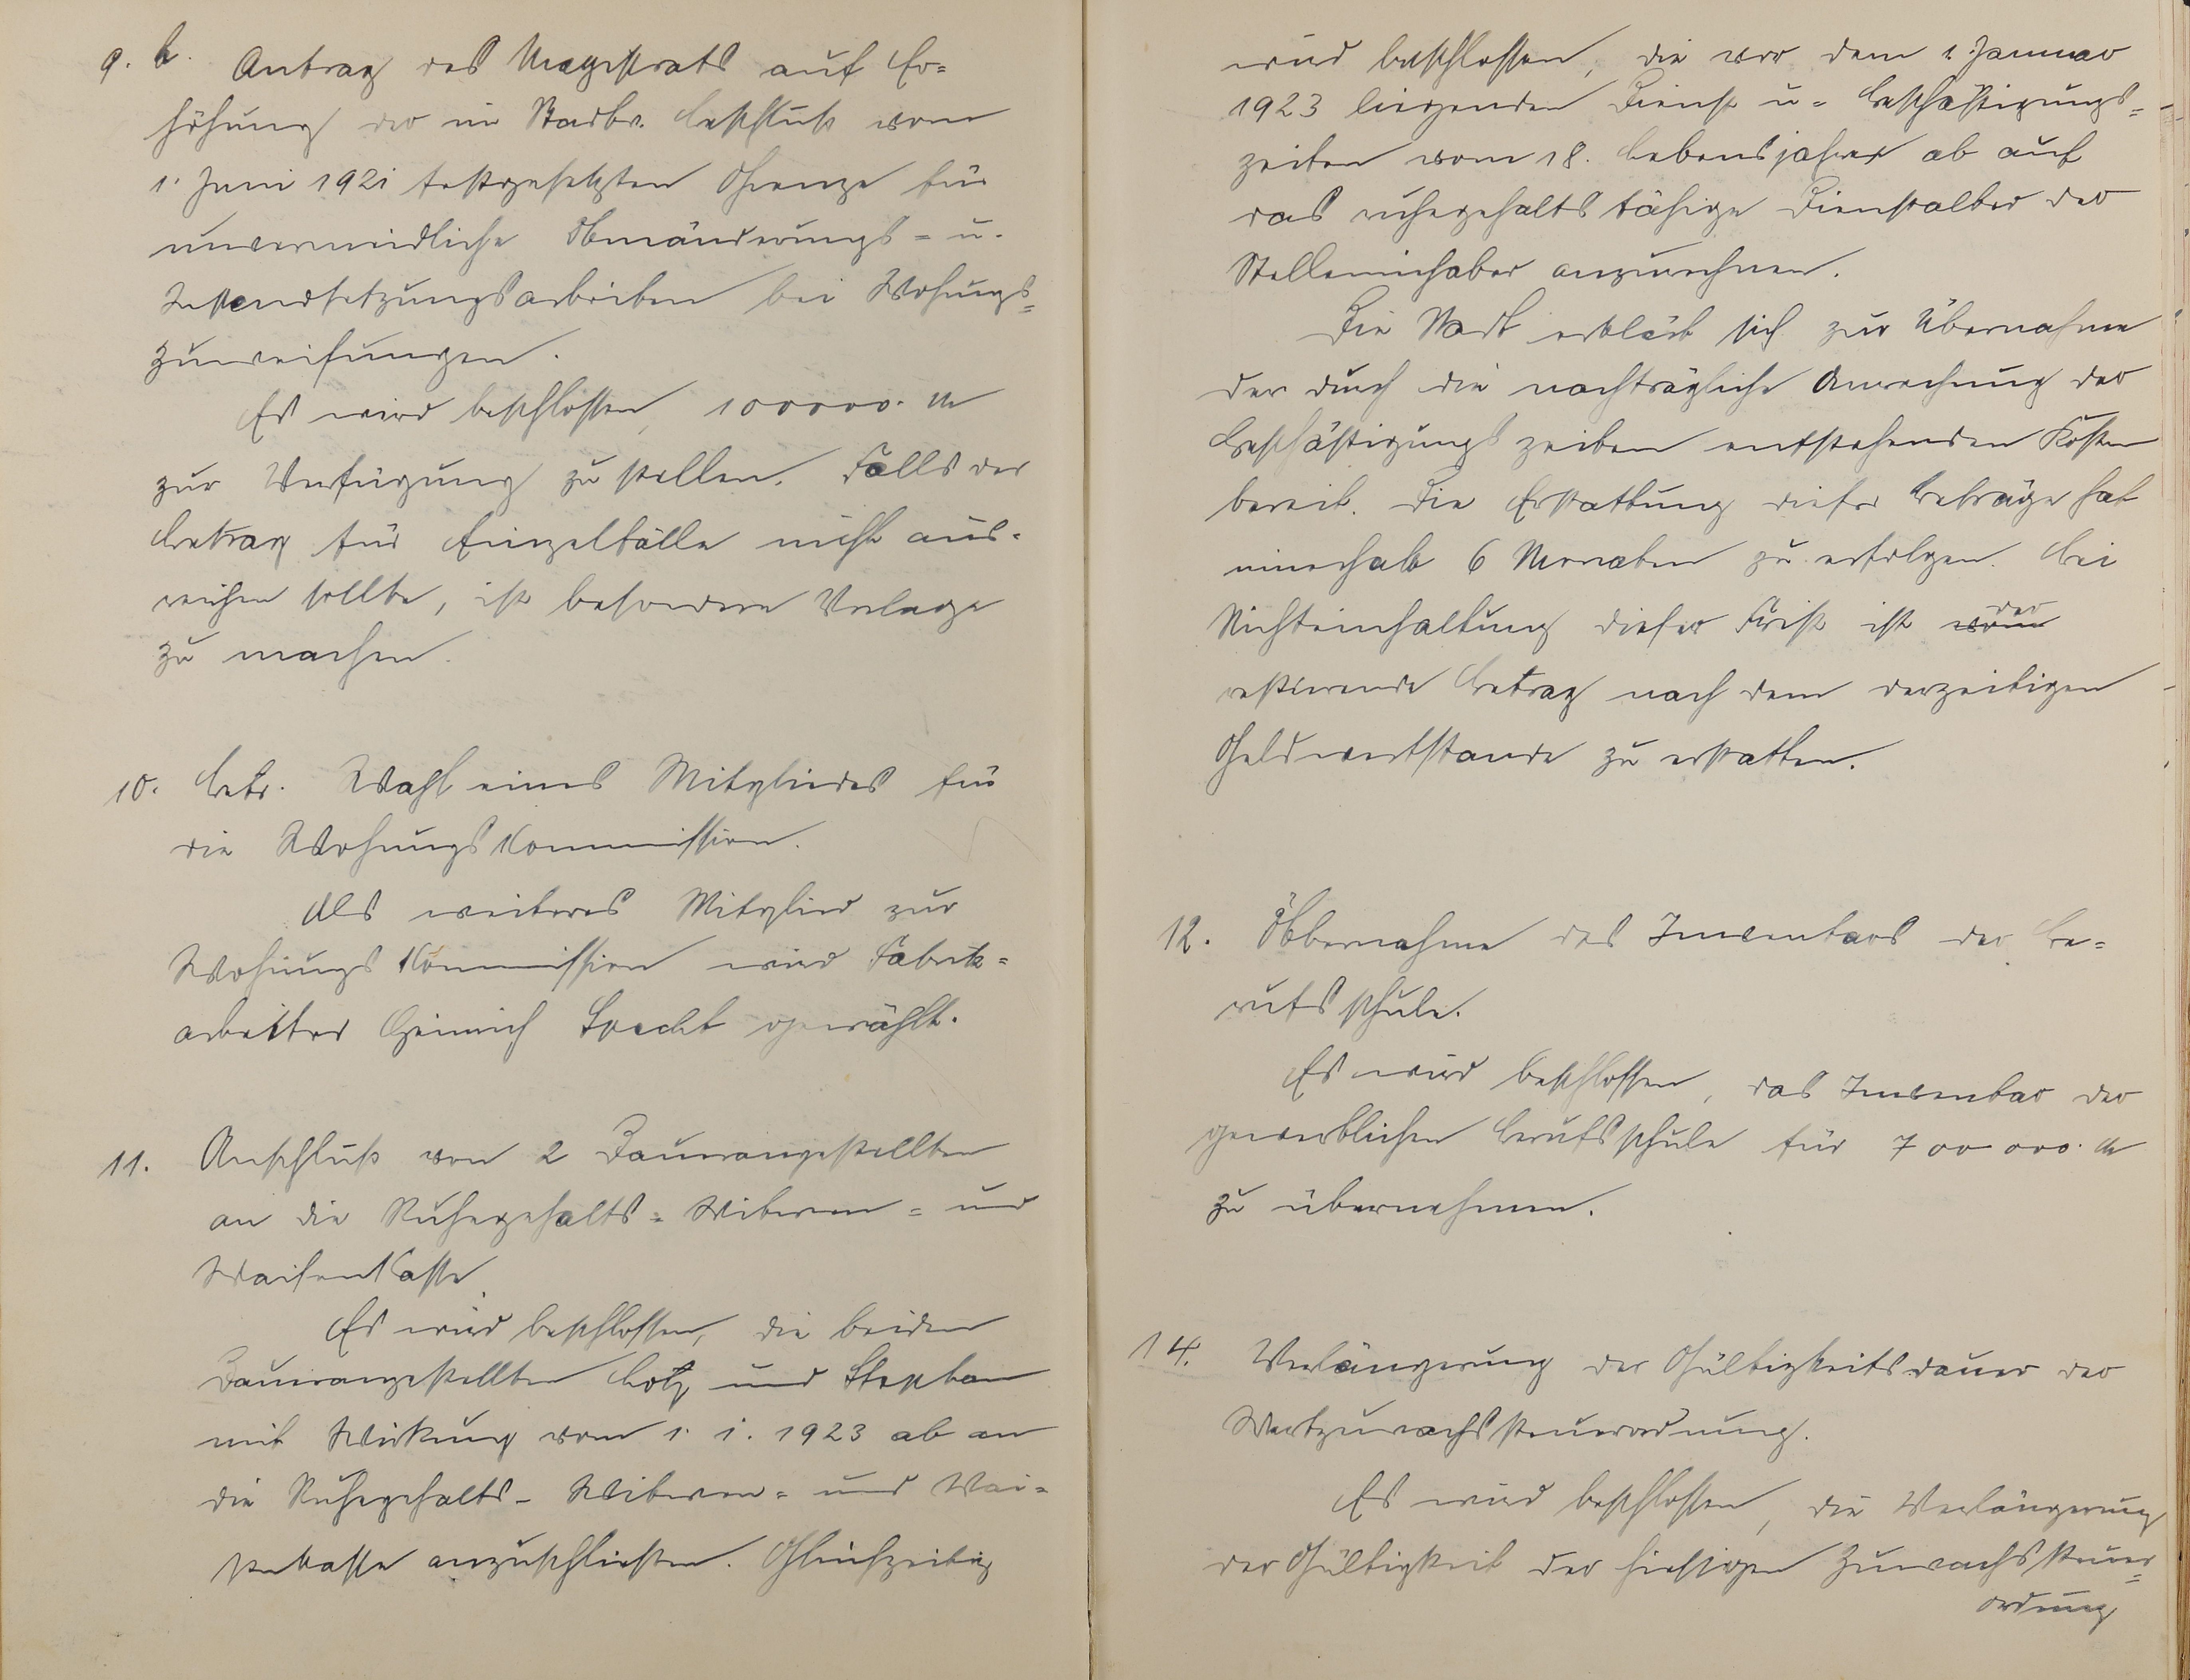 9. b. Antrag des Magistrats auf Er-
höhung der im Stadtv. Beschluß vom
1. Juni 1921 festgesetzten Grenze für
unvermeidliche Abänderungs- u.
Instandsetzungsarbeiten bei Wohungs-
zuweisungen.
Es wird beschlossen, 100000. M
zur Verfügung zu stellen. Falls der
Betrag für Einzelfälle nicht aus-
reichen sollte, ist besondere Vorlage
zu machen.
10. Betr. Wahl eines Mitgliedes für
die Wohungskommission.
Als weiteres Mitglied zur
Wohungskommission wird Fabrik-
arbeiter Heinrich Specht gewählt.
11. Anschluß von 2 Dauerangestellten
an die Ruhegehalts- Witwen- und
Waisenkasse.
Es wird beschlossen, die beiden
Dauerangestellten Botz und Stephan
mit Wirkung vom 1. 1. 1923 ab an
die Ruhegehalts- Witwen- und Wai-
senkasse anzuschließen. Gleichzeitig
wird beschlossen, die vor dem 1. Januar
1923 liegenden Dienst u- Beschäftigungs-
zeiten vom 18. Lebensjahre ab auf
das ruhegehaltsfähige Dienstalter der
Stelleninhaber anzurechnen.
Die Stadt erklärt sich zur Übernahme
der durch die nachträgliche Anrechnung der
Beschäftigungszeiten entstehenden Kosten
bereit. Die Erstattung dieser Beträge hat
innerhalb 6 Monaten zu erfolgen. Bei
Nichteinhaltung dieser Frist ist der
restierende Betrag nach dem derzeitigen
Geldwertstande zu erstatten.
12. Übernahme des Inventars der Be-
rufsschule.
Es wird beschlossen, das Inventar der
gewerblichen Berufsschule für 700 000. M
zu übernehmen.
14. Verlängerung der Gültigkeitsdauer der
Wertzuwachssteuerordnung.
Es wird beschlossen, die Verlängerung
der Gültigkeit der hiesigen Zuwachssteuer-
ordnung